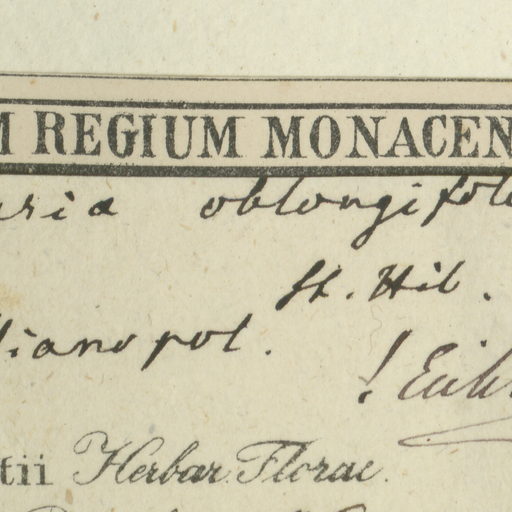 M REGIUM MONACEN
aria oblongifoli
St. Hil.
lianopol.
! Eichl
tii Herbar. Florae